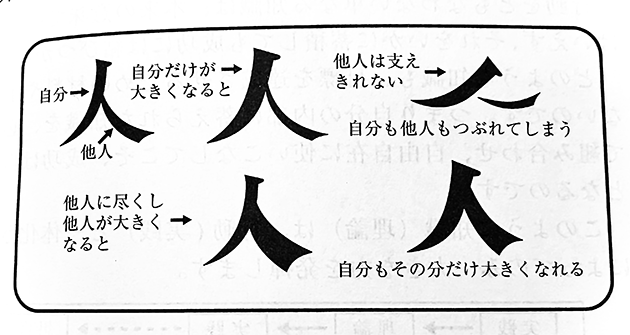 自分→
人
他人
自分だけが→
大きくなると
人
他人は支え→
きれない
自分も他人もつぶれてしまう
他人に尽くし
他人が大きく→
なると
人
人
自分もその分だけ大きくなれる